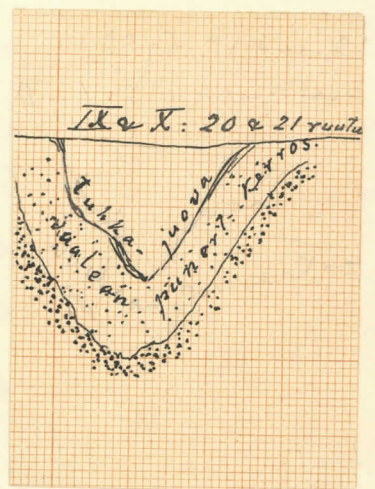 IX & X: 20 & 21 ruutu
tuhka-juova
vaalean punert. kerros.